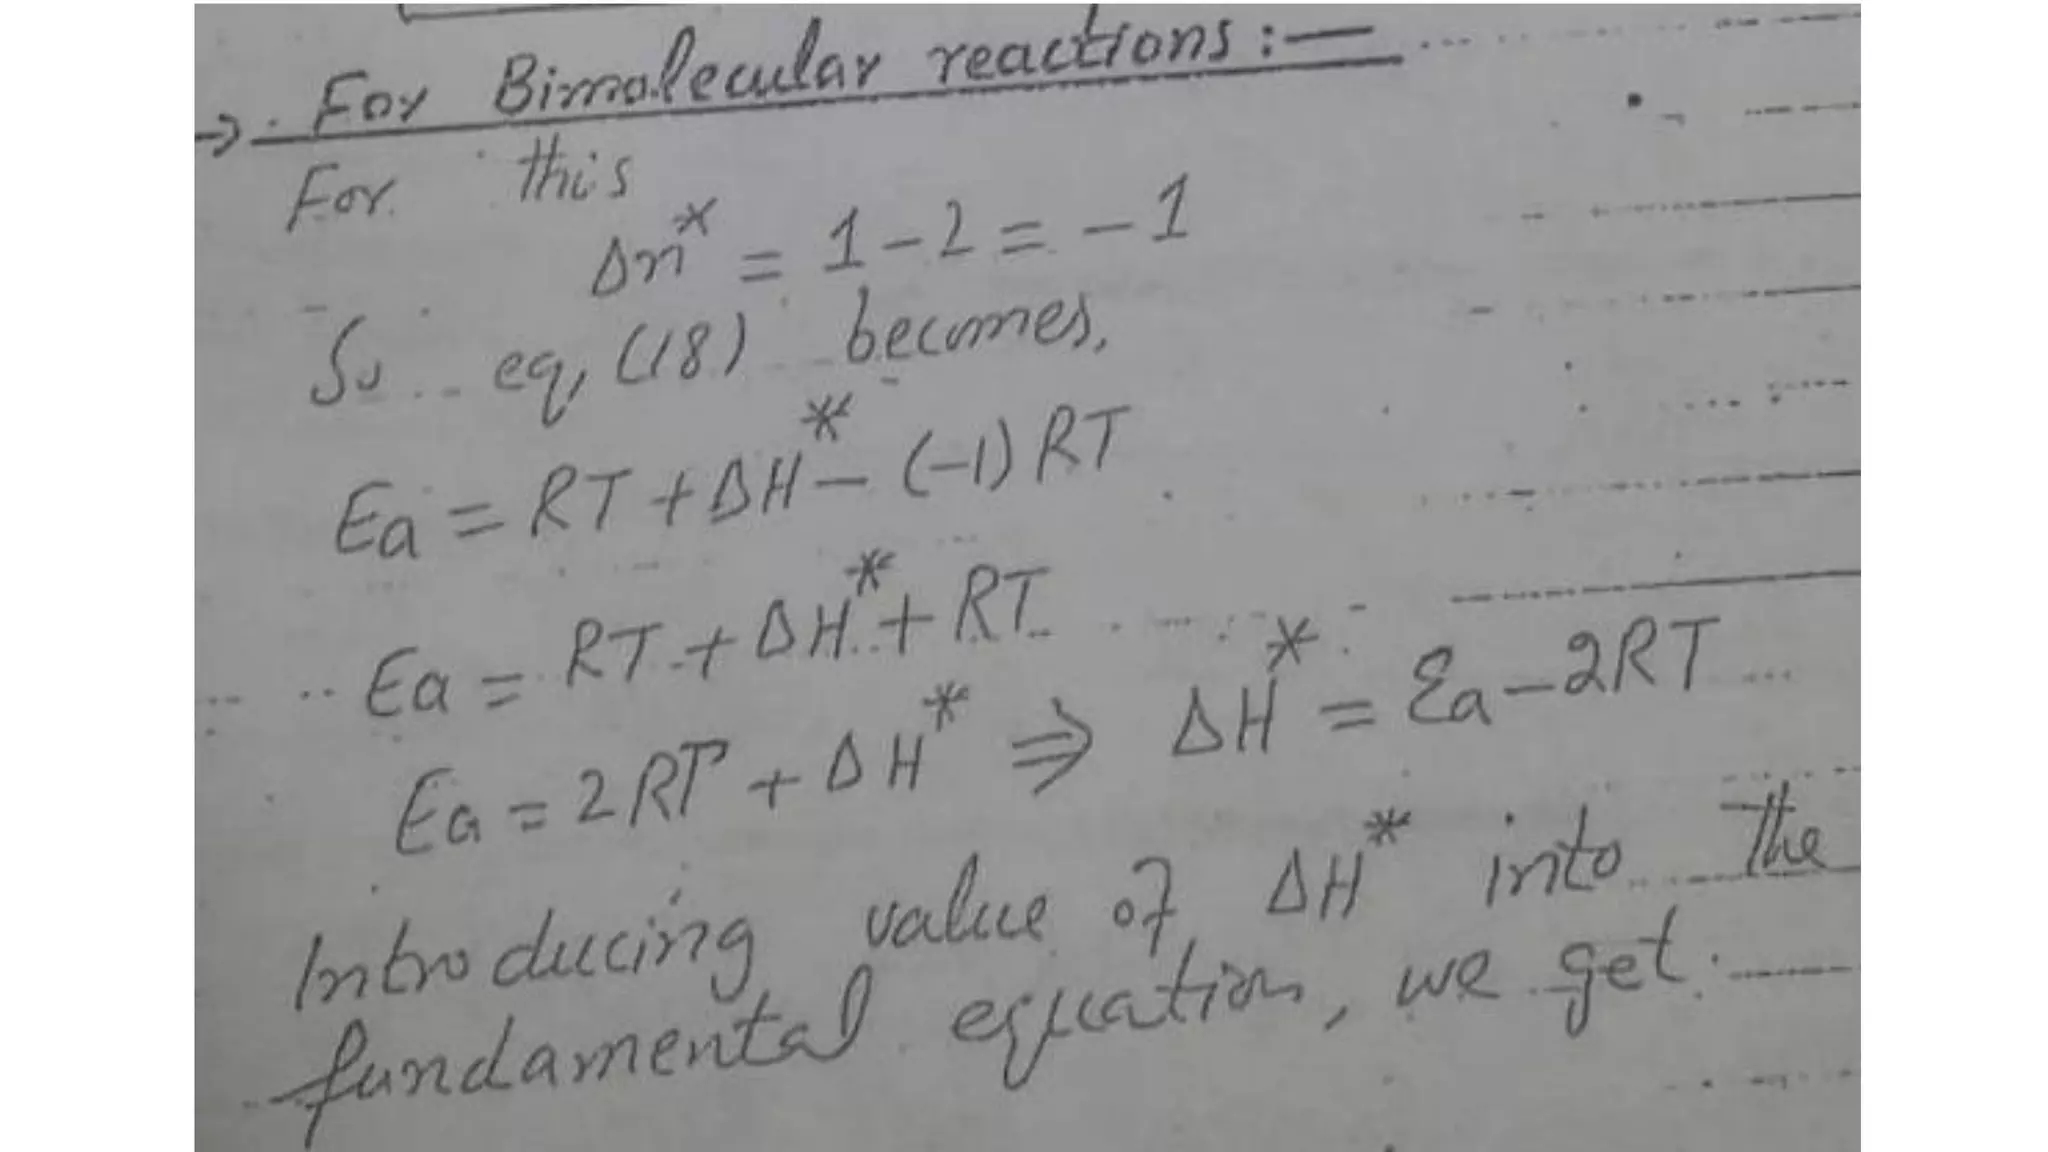 → For Bimolecular reactions :—
For this
Δn* = 1 - 2 = - 1
So eq, (18) becomes,
Ea = RT + ΔH* - (-1) RT
Ea = RT + ΔH* + RT
Ea = 2RT + ΔH* ⇒ ΔH* = Ea - 2RT
Introducing value of ΔH* into the
fundamental equation, we get.